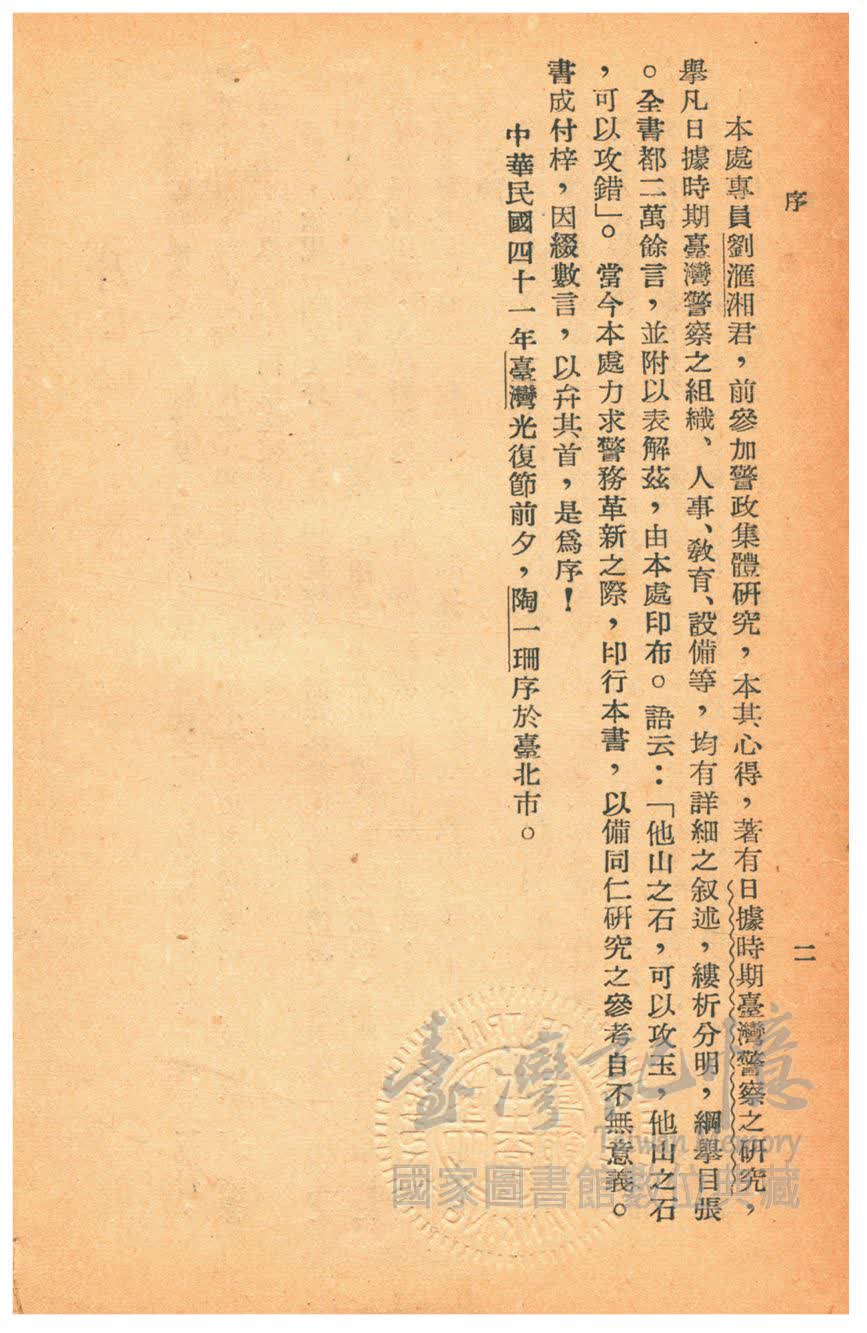 序
二
本處專員劉滙湘君，前參加警政集體硏究，本其心得，著有日據時期臺灣警察之硏究，
舉凡日據時期臺灣警察之組織、人事、敎育、設備等，均有詳細之叙述，縷析分明，綱舉目張
。全書都二萬餘言，並附以表解茲，由本處印布。語云：「他山之石，可以攻玉，他山之石
，可以攻錯」。當今本處力求警務革新之際，印行本書，以備同仁硏究之參考自不無意義。
書成付梓，因綴數言，以弁其首，是爲序！
中華民國四十一年臺灣光復節前夕，陶一珊序於臺北市。
臺灣記憶
Taiwan Memory
國家圖書館數位典藏